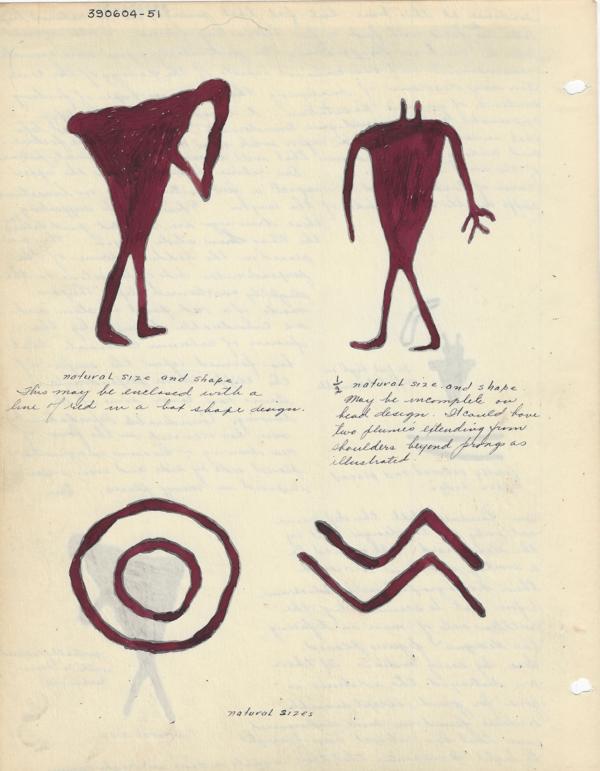 390604-51
natural size and shape
This may be enclosed with a
line of red in a box shape design.
1/2 natural size and shape.
May be incomplete on
head design. It could have
two plumes extending from
shoulders beyond prongs as
illustrated
natural sizes